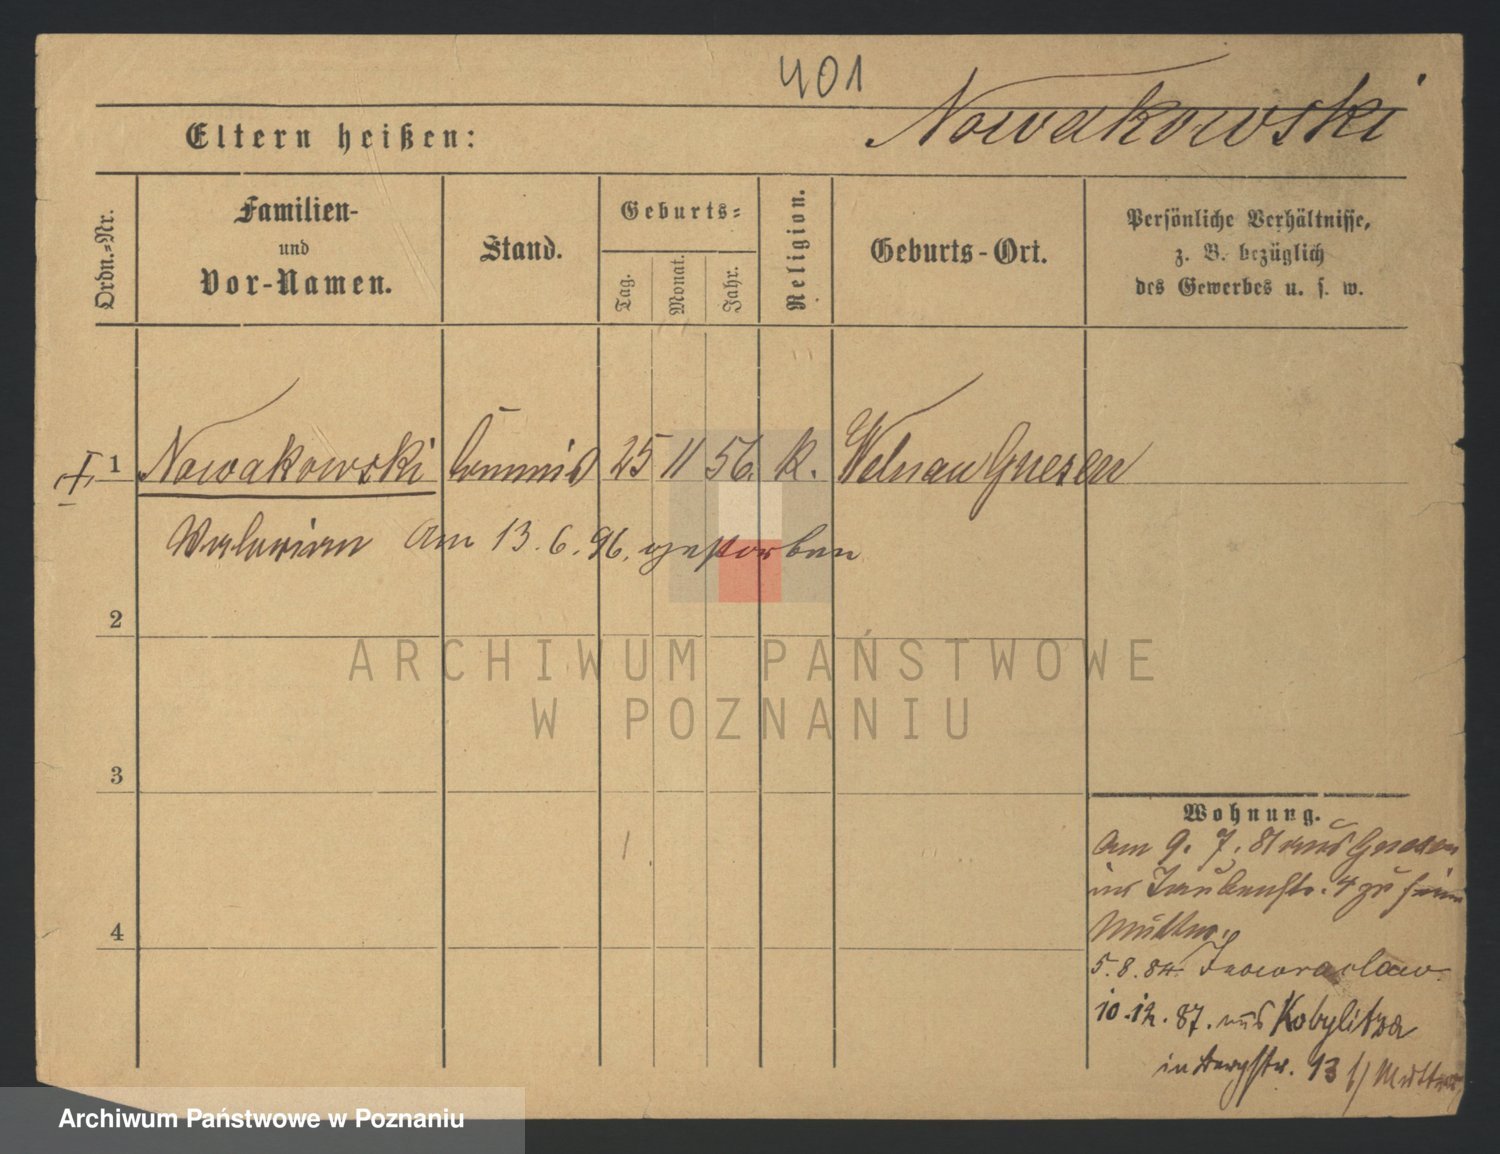 401
Eltern heißen: Nowakowski
Ordn.-Nr.
Familien-
und
Vor-Namen.
Stand.
Geburts-
Tag.
Monat.
Jahr.
Religion.
Geburts-Ort.
Persönliche Verhältnisse,
z. B. bezüglich
des Gewerbes u. s. w.
1 Nowakowski Commis 25 11 56. k. Welnau Gnesen
Valerian Am 13. 6. 96. gestorben
2
ARCHIWUM PAŃSTWOWE
W POZNANIU
3
4
Wohnung.
Am 9. 7. 81 aus Gnesen
in Taubenstr. 4 zu seiner
Mutter.
5. 8. 84. Inowraclaw
10. 12. 87. aus Kobylitza
in Bergstr. 13 b/ Mutter
Archiwum Państwowe w Poznaniu